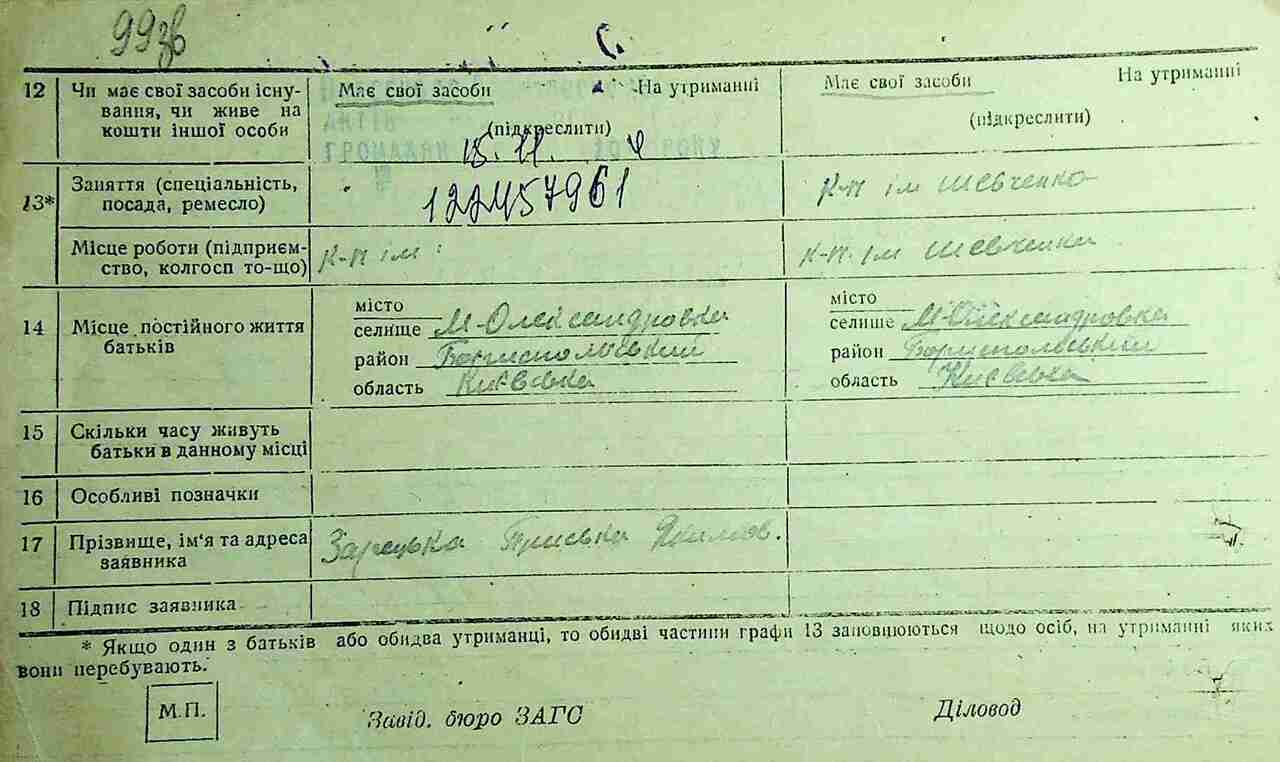 99зв
12 Чи має свої засоби існування, чи живе на кошти іншої особи
Має свої засоби На утриманні
(підкреслити)
Має свої засоби На утриманні
(підкреслити)
15.11.
13* Заняття (спеціальність, посада, ремесло)
122457961
к-п ім Шевченка
Місце роботи (підприємство, колгосп то-що)
к-п ім
к-п. ім Шевченка
14 Місце постійного життя батьків
місто
селище М-Олександровка
район Бориспольський
область Київська
місто
селише М-Олександровка
район Бориспольський
область Київська
15 Скільки часу живуть батьки в данному місці
16 Особливі позначки
17 Прізвище, ім'я та адреса заявника
Зарецька Приська Якимов.
18 Підпис заявника
* Якщо один з батьків або обидва утриманці, то обидві частини графи 13 заповнюються щодо осіб, на утриманні яких
вони перебувають.
М.П.
Завід. бюро ЗАГС
Діловод